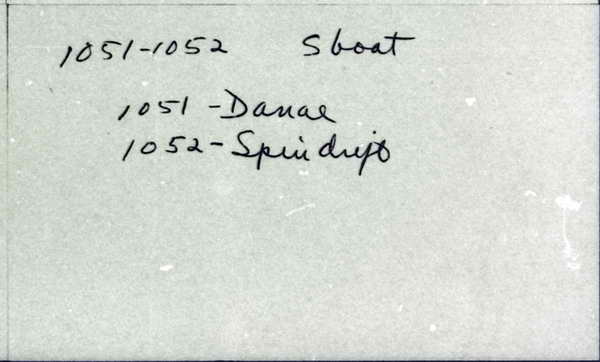 1051-1052 S boat
1051 - Danae
1052 - Spindrift